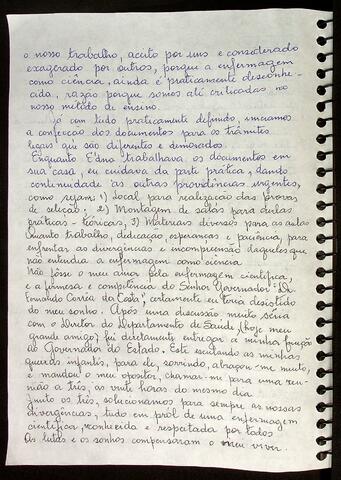 o nosso trabalho, aceito por uns e considerado
exagerado por outros, porque a enfermagem
como ciência, ainda é praticamente desconhe-
cida, razão porque somos até criticadas no
nosso método de ensino.
Já com tudo praticamente definido, iniciamos
a confecção dos documentos para os trâmites
legais que são diferentes e demorados.
Enquanto Edna trabalhava os documentos em
sua casa, eu cuidava da parte prática, dando
continuidade as outras providências urgentes,
como sejam: 1) Local para realização das provas
de seleção: 2) Montagem de salas para aulas
práticas e teóricas; 3) Materiais diversos para as aulas
Quanto trabalho, dedicação, esperanças e paciência, para
enfrentar as divergências e incompreensão daqueles que
não entendia a enfermagem como ciência.
Não fôsse o meu amor pela enfermagem científica,
e a firmesa e competência do Senhor Governador "Dr.
Fernando Corrêa da Costa", certamente eu teria desistido
do meu sonho. Após uma discussão, muito séria
com o Diretor do Departamento de Saúde, (hoje meu
grande amigo) fui diretamente entregar a minha função
ao Governador do Estado. Este escutando as minhas
queixas infantis, para ele, sorrindo, abraçou-me muito,
e mandou o meu opositor, chamar-me para uma reu-
nião a três, as vinte horas do mesmo dia
Junto os três, solucionamos para sempre as nossas
divergências, tudo em pról de uma enfermagem
científica, conhecida e respeitada por todos
As lutas e os sonhos compensaram o meu viver.